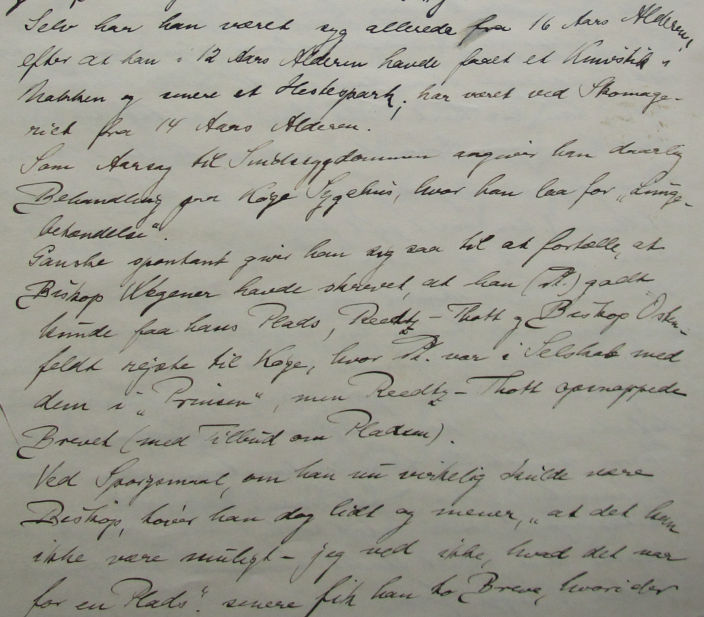 Selv har han været syg allerede fra 16 Aars Alderen,
efter at han i 12 Aars Alderen havde faaet et Knivstik i
Nakken og senere et Hestespark; har været ved Skomage-
riet fra 14 Aars Alderen.
Som Aarsag til Sindssygdommen angiver han daarlig
Behandling paa Køge Sygehus, hvor han laa for „Lunge-
betændelse“.
Ganske spontant giver han sig saa til at fortælle, at
Biskop Wegener havde skrevet, at han (Pt.) godt
kunde faa hans Plads, Reedtz-Thott og Biskop Osten-
feldt rejste til Køge, hvor Pt. var i Selskab med
dem i „Prinsen“, men Reedtz-Thott opsnappede
Brevet (med Tilbud om Pladsen).
Ved Spørgsmaal, om han nu virkelig skulde være
Biskop, tøver han dog lidt og mener, „at det kan
ikke være muligt - jeg ved ikke, hvad det var
for en Plads“. senere fik han to Breve, hvori der